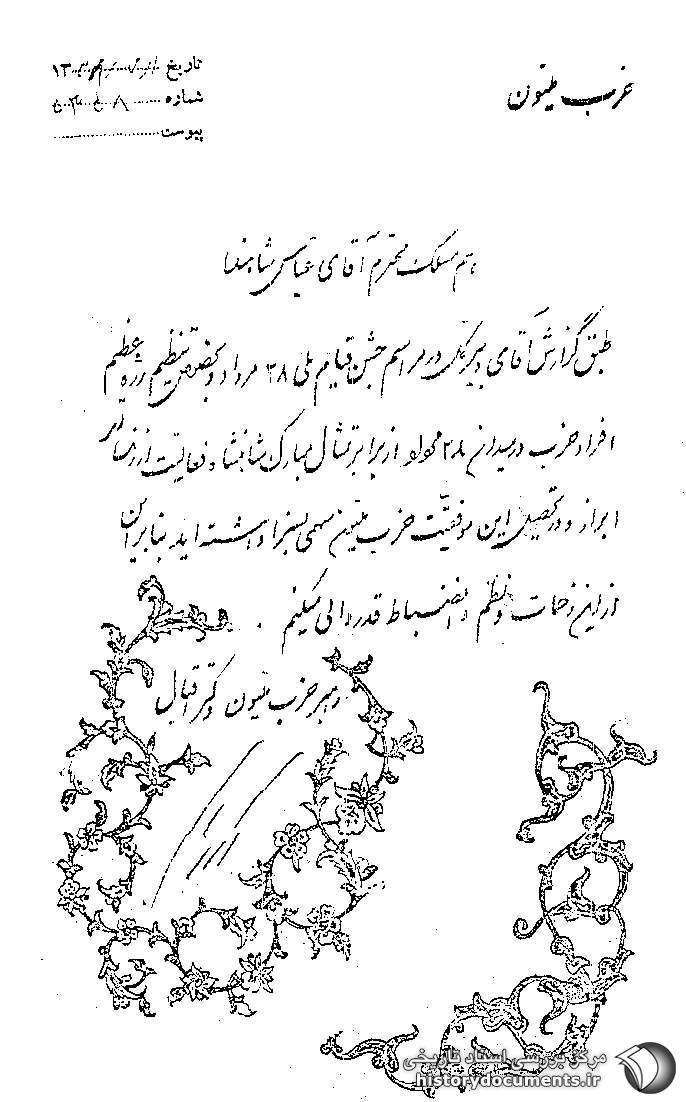 حزب ملیون
تاریخ
شماره
پیوست
هم مسلک محترم آقای عباس شاهنده
طبق گزارش آقای دبیر کل در مراسم جشن قیام ملی ۲۸ مرداد و بخصوص تنظیم رژه عظیم
افراد حزب در میدان ۲۸ مرداد از برابر تمثال مبارک شاهنشاه فعالیت ارزنده‌ای
ابراز و در تحصیل این موفقیت حزب ملیون سهمی بسزا داشته‌اید بنابراین
از این زحمات و نظم و انضباط قدردانی میکنم.
رهبر حزب ملیون دکتر اقبال
مرکز بررسی اسناد تاریخی
historydocuments.ir